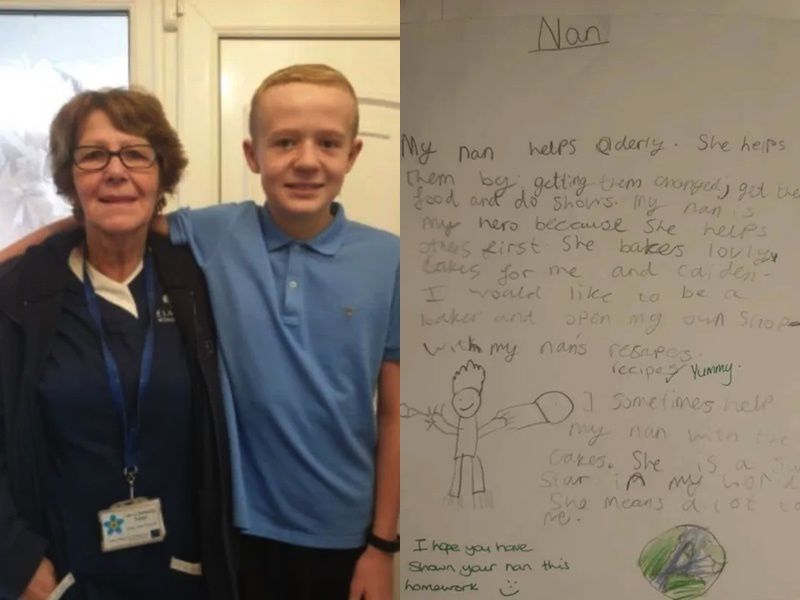 Nan
My nan helps elderly. She helps
them by: getting them changed, get the
food and do showrs. My nan is
my hero because she helps
others first. She bakes lovly
cakes for me and Caiden.
I would like to be a
baker and open my own shop
with my nan's resapes.
recipes ✓ Yummy.
I sometimes help
my nan with the
cakes. She is a
star in my world
She means a lot to
me.
I hope you have
shown your nan this
homework